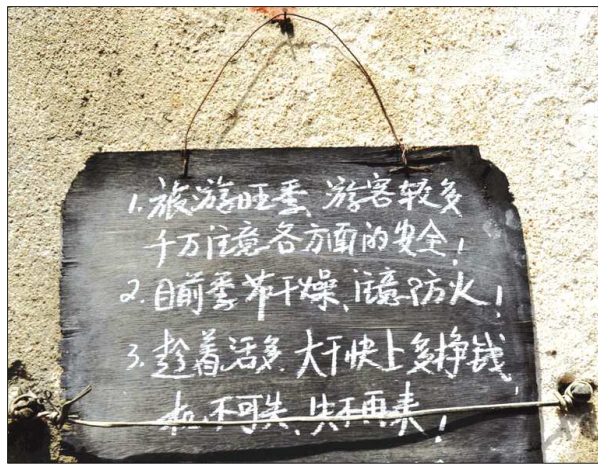 1.旅游旺季、游客较多
千万注意各方面的安全！
2.目前季节干燥、注意防火！
3.趁着活多.大干快上多挣钱
机不可失、失不再来！